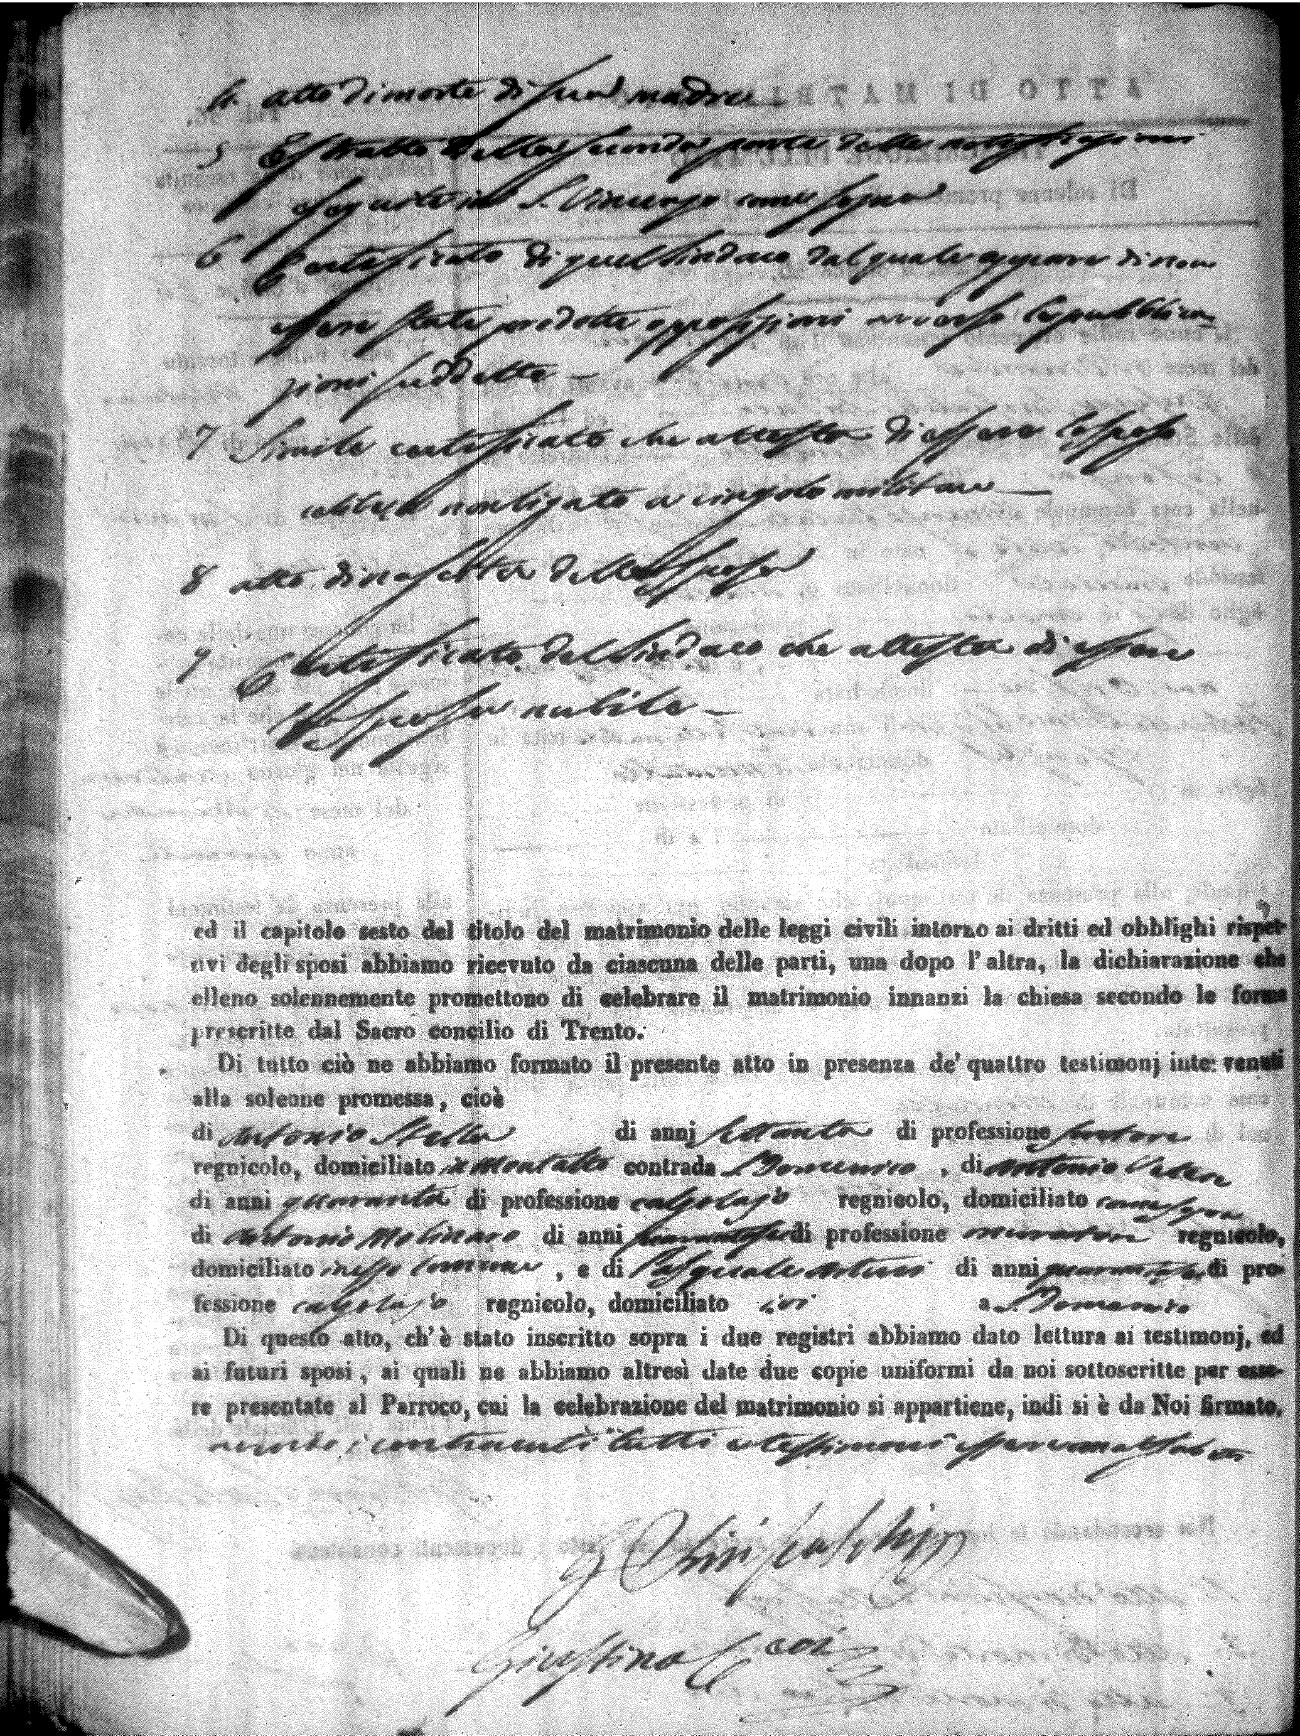 4. atto di morte di sua madre
5 Estratto della seconda parte delle notificazioni
eseguite in S. Vincenzo come sopra
6 Certificato di quel Sindaco dal quale appare di non
essere state prodotte opposizioni avverso le pubblica-
zioni suddette
7 Simile certificato che attesta di essere lo sposo
celibe e non ligato a cingolo militare
8 atto di nascita della sposa
9 Certificato del Sindaco che attesta di essere
la sposa nubile
ed il capitolo sesto del titolo del matrimonio delle leggi civili intorno ai dritti ed obblighi rispet-
tivi degli sposi abbiamo ricevuto da ciascuna delle parti, una dopo l'altra, la dichiarazione che
elleno solennemente promettono di celebrare il matrimonio innanzi la chiesa secondo le forme
prescritte dal Sacro concilio di Trento.
Di tutto ciò ne abbiamo formato il presente atto in presenza de' quattro testimonj intervenuti
alla solenne promessa, cioè
di Antonio Stella di anni settanta di professione
regnicolo, domiciliato in Montalto contrada S. Domenico, di Antonio
di anni quaranta di professione calzolajo regnicolo, domiciliato come sopra
di Antonio Molinaro di anni di professione regnicolo,
domiciliato in esso Comune, e di Pasquale Arturi di anni di pro-
fessione calzolajo regnicolo, domiciliato ivi a S. Domenico
Di questo atto, ch'è stato inscritto sopra i due registri abbiamo dato lettura ai testimonj, ed
ai futuri sposi, ai quali ne abbiamo altresì date due copie uniformi da noi sottoscritte per esse-
re presentate al Parroco, cui la celebrazione del matrimonio si appartiene, indi si è da Noi firmato,
avendo i contraenti tutti e testimoni
Giustino